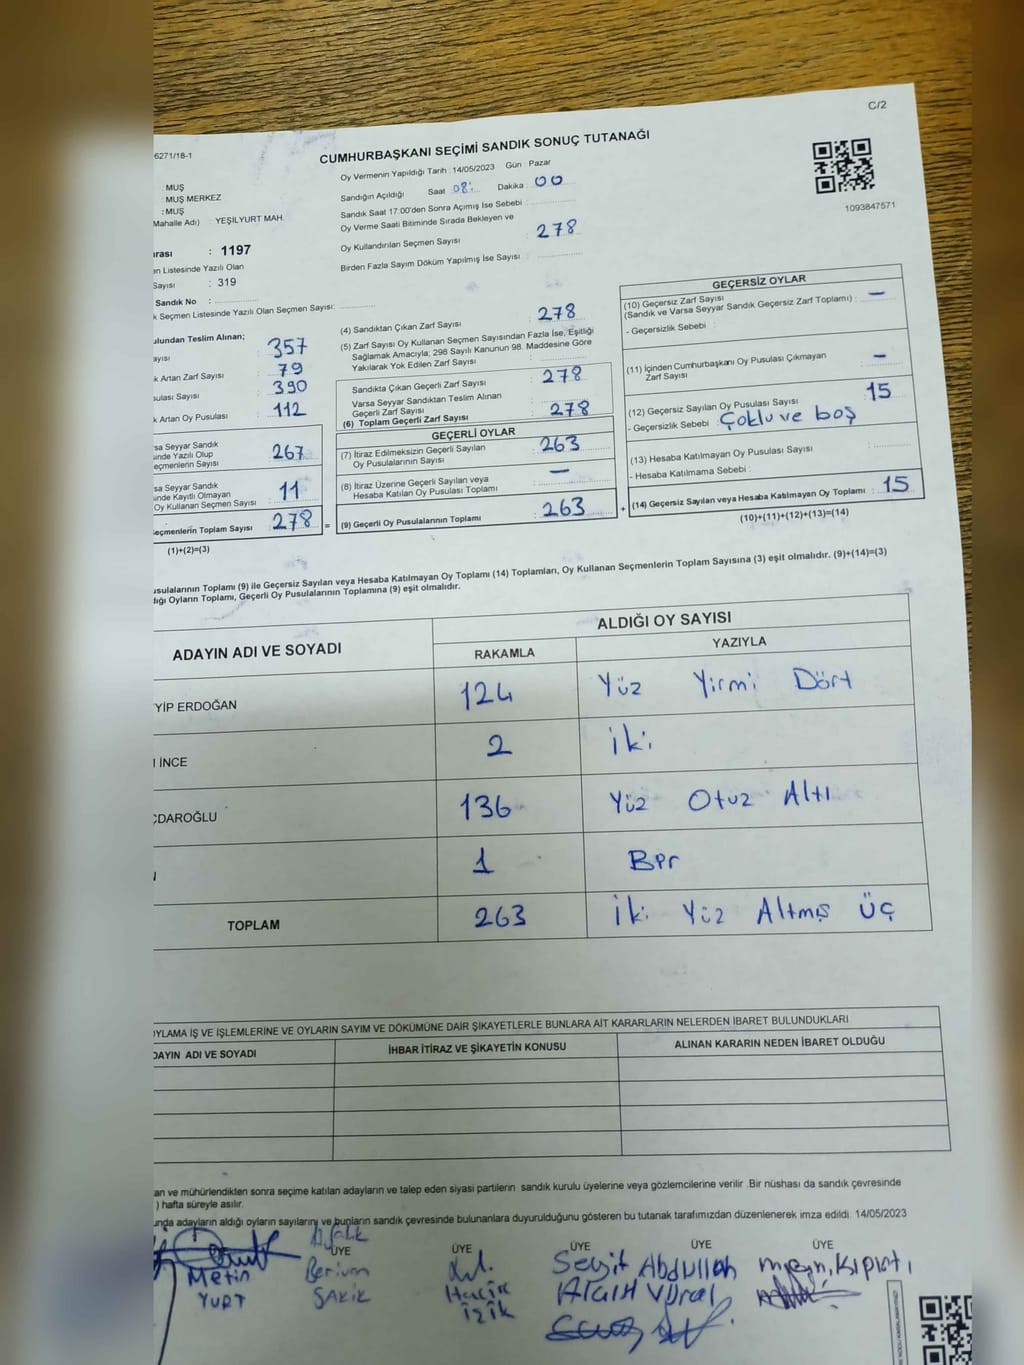 C/2
6271/18-1
CUMHURBAŞKANI SEÇİMİ SANDIK SONUÇ TUTANAĞI
: MUŞ
: MUŞ MERKEZ
: MUŞ
Mahalle Adı) : YEŞİLYURT MAH.
ırası : 1197
n Listesinde Yazılı Olan
Sayısı : 319
Sandık No :
k Seçmen Listesinde Yazılı Olan Seçmen Sayısı:
Oy Vermenin Yapıldığı Tarih : 14/05/2023 Gün : Pazar
Sandığın Açıldığı Saat 08: Dakika : 00
Sandık Saat 17:00'den Sonra Açımış İse Sebebi :
Oy Verme Saati Bitiminde Sırada Bekleyen ve
Oy Kullandırılan Seçmen Sayısı : 278
Birden Fazla Sayım Döküm Yapılmış İse Sayısı :
1093847571
ulundan Teslim Alınan;
ayısı : 357
k Artan Zarf Sayısı : 79
sulası Sayısı : 390
k Artan Oy Pusulası : 112
sa Seyyar Sandık
inde Yazılı Olup
eçmenlerin Sayısı : 267
sa Seyyar Sandık
inde Kayıtlı Olmayan
Oy Kullanan Seçmen Sayısı : 11
eçmenlerin Toplam Sayısı : 278 =
(1)+(2)=(3)
(4) Sandıktan Çıkan Zarf Sayısı : 278
(5) Zarf Sayısı Oy Kullanan Seçmen Sayısından Fazla İse, Eşitliği
Sağlamak Amacıyla; 298 Sayılı Kanunun 98. Maddesine Göre
Yakılarak Yok Edilen Zarf Sayısı :
Sandıkta Çıkan Geçerli Zarf Sayısı : 278
Varsa Seyyar Sandıktan Teslim Alınan
Geçerli Zarf Sayısı :
(6) Toplam Geçerli Zarf Sayısı : 278
GEÇERLİ OYLAR
(7) İtiraz Edilmeksizin Geçerli Sayılan
Oy Pusulalarının Sayısı : 263
(8) İtiraz Üzerine Geçerli Sayılan veya
Hesaba Katılan Oy Pusulası Toplamı : —
(9) Geçerli Oy Pusulalarının Toplamı : 263 +
GEÇERSİZ OYLAR
(10) Geçersiz Zarf Sayısı
(Sandık ve Varsa Seyyar Sandık Geçersiz Zarf Toplamı) : —
- Geçersizlik Sebebi :
(11) İçinden Cumhurbaşkanı Oy Pusulası Çıkmayan
Zarf Sayısı : —
(12) Geçersiz Sayılan Oy Pusulası Sayısı : 15
- Geçersizlik Sebebi : Çoklu ve boş
(13) Hesaba Katılmayan Oy Pusulası Sayısı :
- Hesaba Katılmama Sebebi :
(14) Geçersiz Sayılan veya Hesaba Katılmayan Oy Toplamı : 15
(10)+(11)+(12)+(13)=(14)
usulalarının Toplamı (9) ile Geçersiz Sayılan veya Hesaba Katılmayan Oy Toplamı (14) Toplamları, Oy Kullanan Seçmenlerin Toplam Sayısına (3) eşit olmalıdır. (9)+(14)=(3)
dığı Oyların Toplamı, Geçerli Oy Pusulalarının Toplamına (9) eşit olmalıdır.
ADAYIN ADI VE SOYADI
ALDIĞI OY SAYISI
RAKAMLA YAZIYLA
YİP ERDOĞAN 124 Yüz Yirmi Dört
İNCE 2 İki
ÇDAROĞLU 136 Yüz Otuz Altı
1 Bir
TOPLAM 263 İki Yüz Altmış Üç
OYLAMA İŞ VE İŞLEMLERİNE VE OYLARIN SAYIM VE DÖKÜMÜNE DAİR ŞİKAYETLERLE BUNLARA AİT KARARLARIN NELERDEN İBARET BULUNDUKLARI
DAYIN ADI VE SOYADI İHBAR İTİRAZ VE ŞİKAYETİN KONUSU ALINAN KARARIN NEDEN İBARET OLDUĞU
an ve mühürlendikten sonra seçime katılan adayların ve talep eden siyasi partilerin sandık kurulu üyelerine veya gözlemcilerine verilir .Bir nüshası da sandık çevresinde
) hafta süreyle asılır.
unda adayların aldığı oyların sayılarını ve bunların sandık çevresinde bulunanlara duyurulduğunu gösteren bu tutanak tarafımızdan düzenlenerek imza edildi. 14/05/2023
ÜYE ÜYE ÜYE ÜYE ÜYE
Metin
YURT
Berivan
SAKİK
Hacir
İzik
Seyit Abdullah
Vural